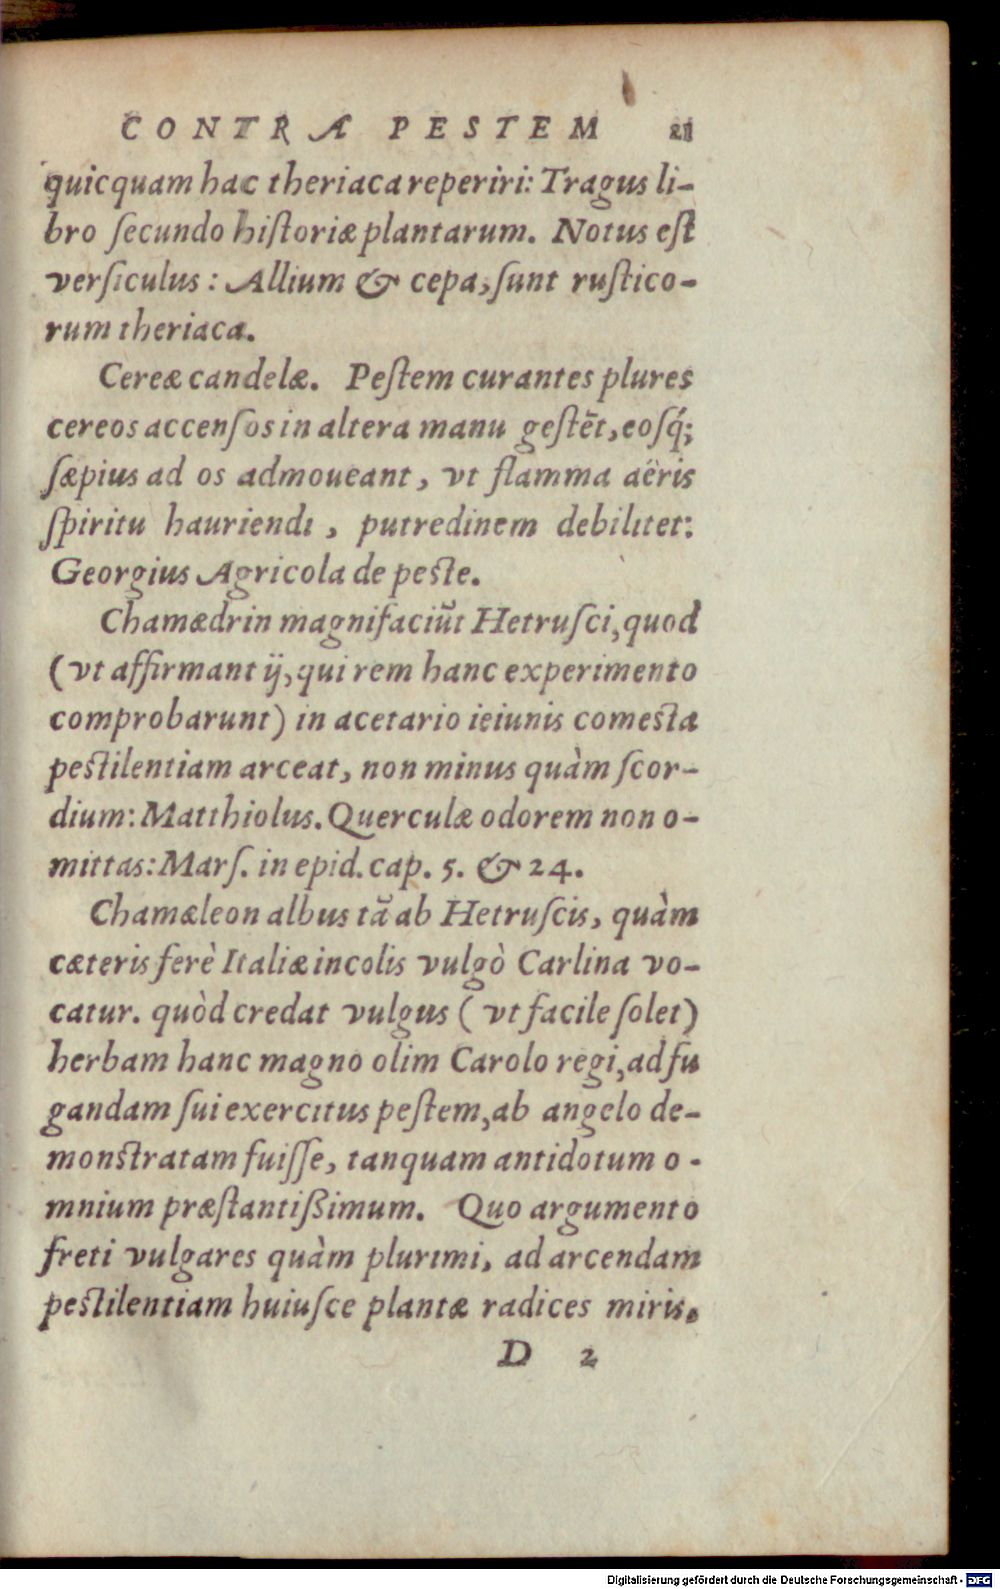 CONTRA PESTEM 21
quicquam hac theriaca reperiri: Tragus li-
bro ſecundo hiſtoriæ plantarum. Notus eſt
verſiculus: Allium & cepa, ſunt ruſtico-
rum theriaca.
Cereæ candelæ. Peſtem curantes plures
cereos accenſos in altera manu geſtēt, eosq́;
ſæpius ad os admoueant, vt flamma aëris
ſpiritu hauriendi, putredinem debilitet:
Georgius Agricola de peste.
Chamædrin magnifaciūt Hetruſci, quod
(vt affirmant ij, qui rem hanc experimento
comprobarunt) in acetario ieiunis comesta
pestilentiam arceat, non minus quàm ſcor-
dium: Matthiolus. Querculæ odorem non o-
mittas: Marſ. in epid. cap. 5. & 24.
Chamæleon albus tā ab Hetruſcis, quàm
cæteris ferè Italiæ incolis vulgò Carlina vo-
catur. quòd credat vulgus (vt facile ſolet)
herbam hanc magno olim Carolo regi, ad fu
gandam ſui exercitus peſtem, ab angelo de-
monstratam fuiſſe, tanquam antidotum o-
mnium præſtantißimum. Quo argumento
freti vulgares quàm plurimi, ad arcendam
pestilentiam huiuſce plantæ radices miris.
D 2
Digitalisierung gefördert durch die Deutsche Forschungsgemeinschaft - DFG